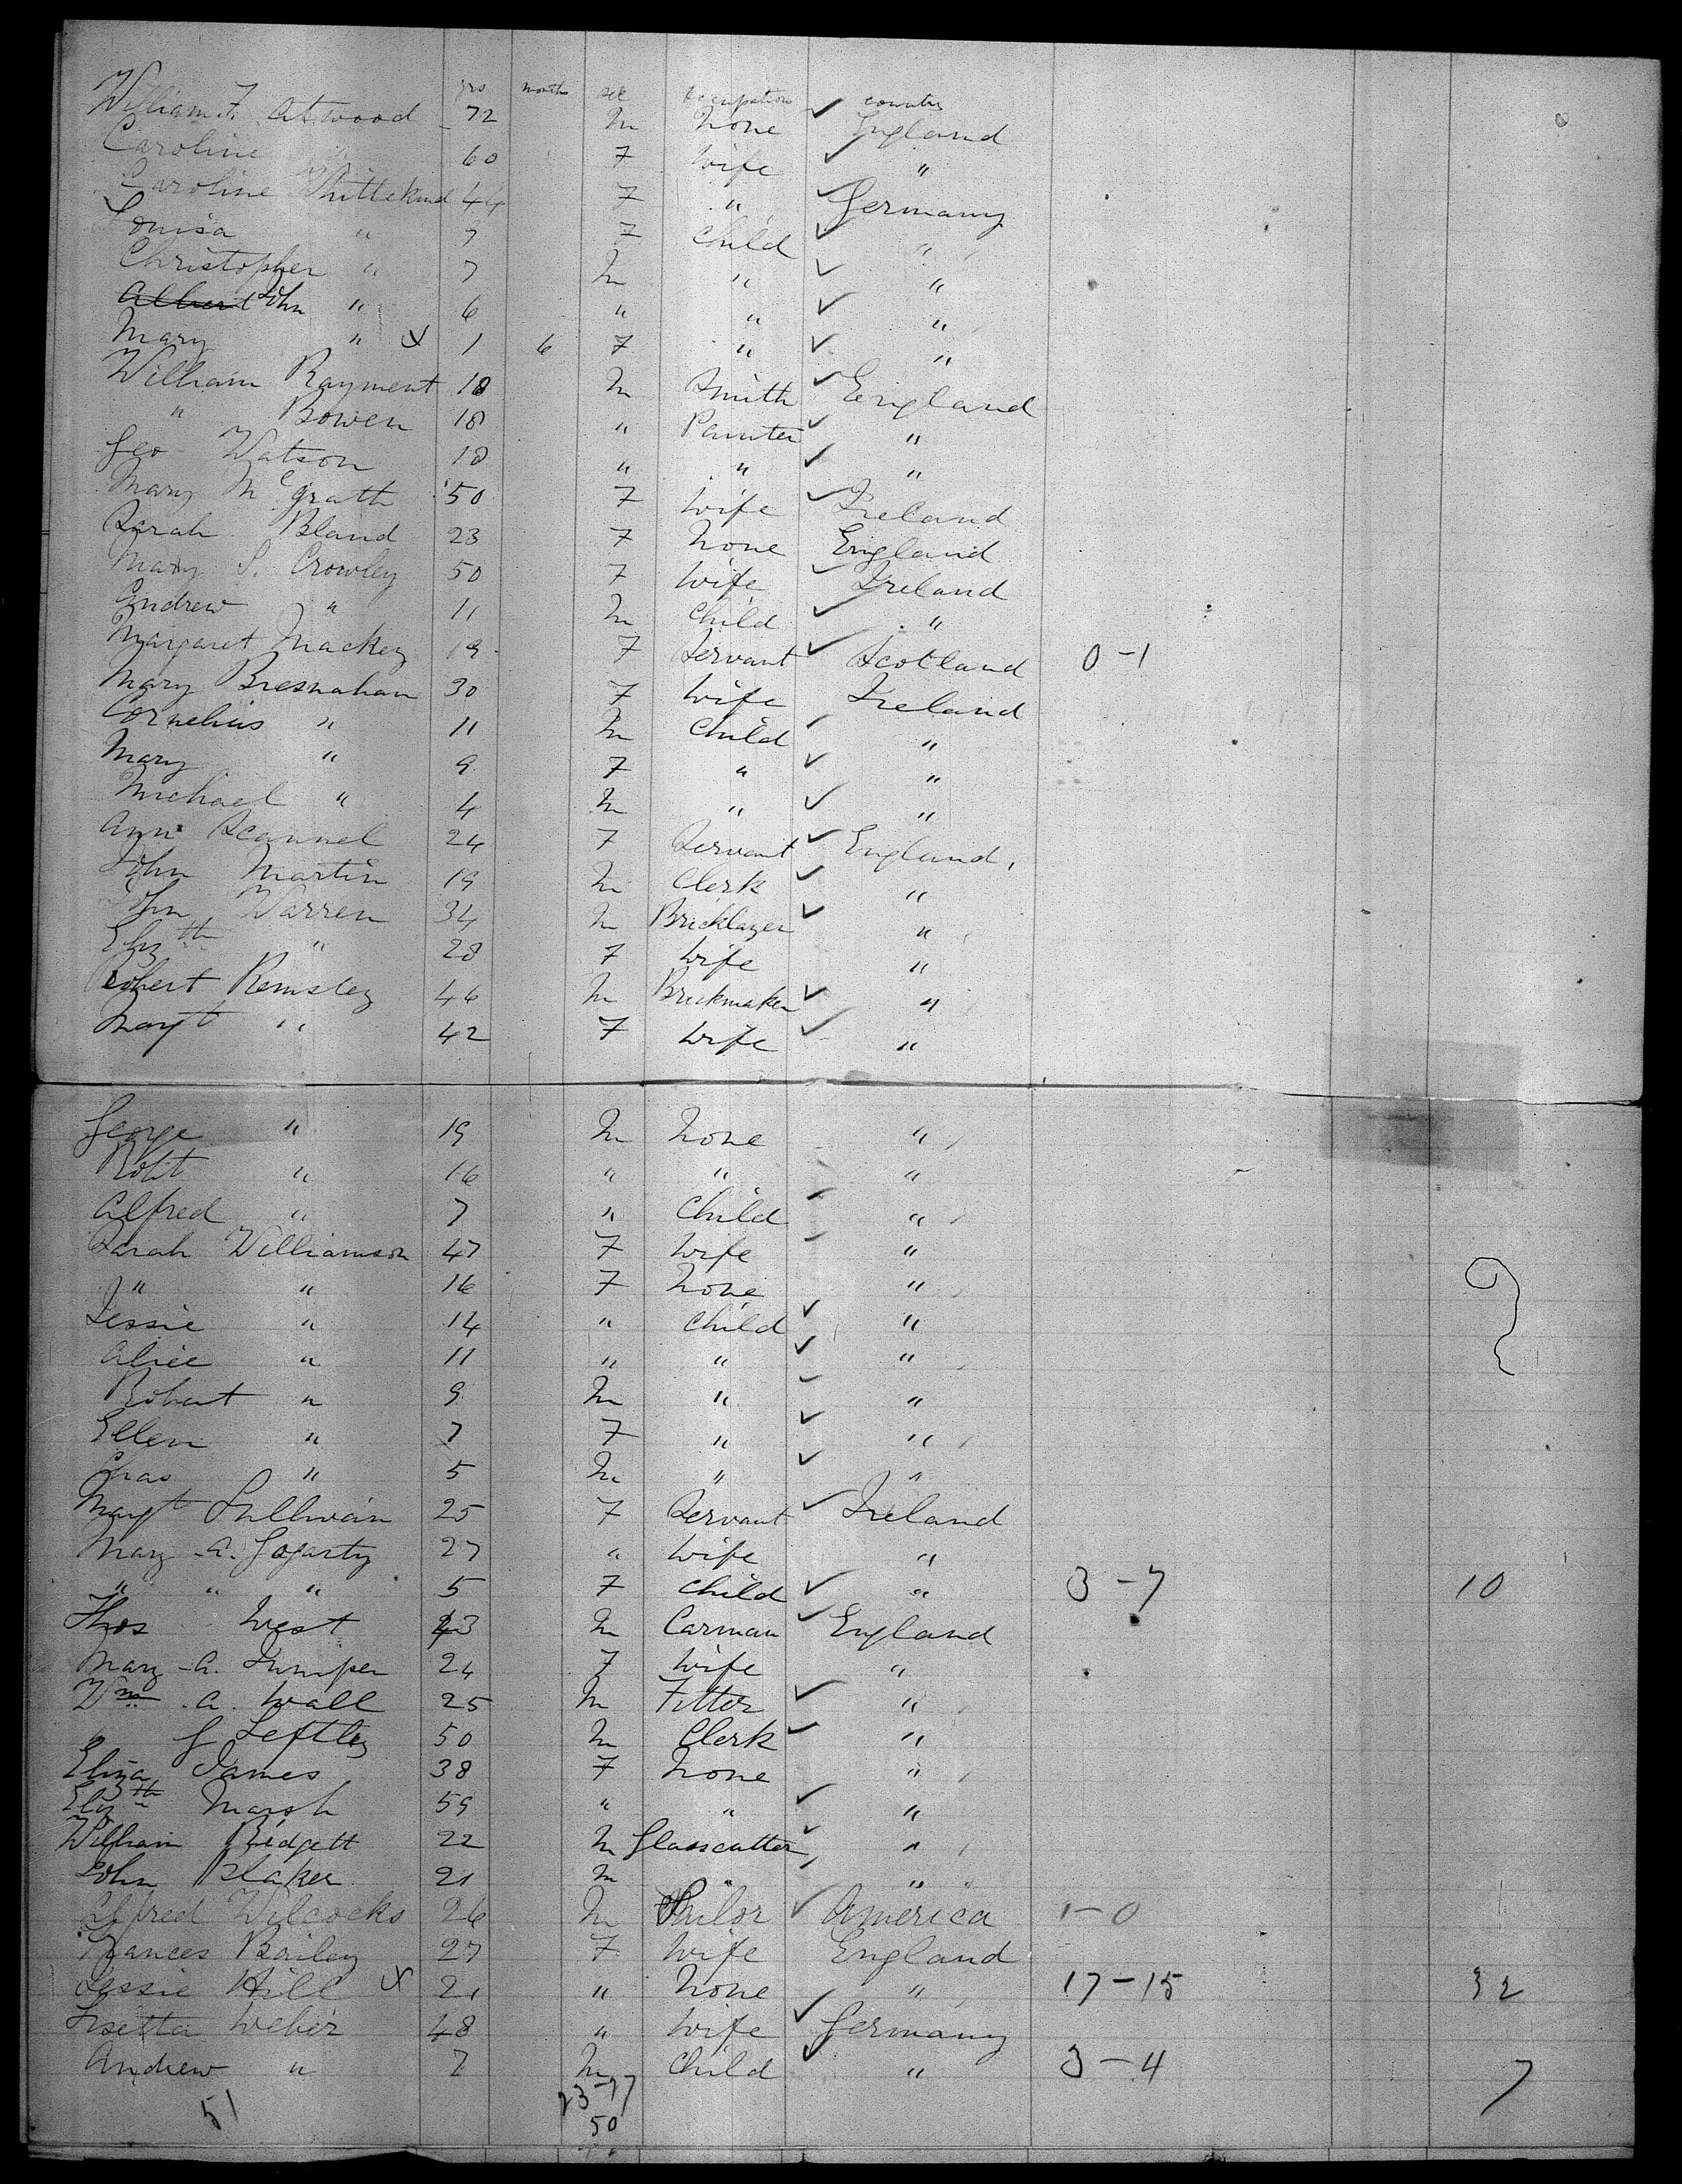 yrs month sex Occupation country
William F. Atwood 72 M None ✓ England
Caroline 60 F Wife ✓ "
Caroline Whittekind 44 F " ✓ Germany
Louisa " 7 F Child ✓ "
Christopher " 7 M " ✓ "
Albert John " 6 " " ✓ "
Mary " X 1 6 F " ✓ "
William Rayment 18 M Smith ✓ England
" Bowen 18 " Painter ✓ "
Geo Watson 18 " " ✓ "
Mary McGrath 50 F Wife ✓ Ireland
Sarah Bland 23 F None England
Mary S. Crowley 50 F Wife ✓ Ireland
Andrew " 11 M Child ✓ "
Margaret Mackey 19 F Servant ✓ Scotland 0-1
Mary Bresnahan 30 F Wife Ireland
Cornelius " 11 M Child ✓ "
Mary " 9 F " ✓ "
Michael " 4 M " ✓ "
Ann Scannel 24 F Servant ✓ England,
John Martin 19 M Clerk ✓ "
John Warren 34 M Bricklayer ✓ "
Elizth " 28 F Wife "
Robert Remsley 46 M Brickmaker ✓ "
Margt " 42 F Wife ✓ "
George " 19 M None "
Robt " 16 " " "
Alfred " 7 " Child ✓ "
Sarah Williamson 47 F Wife ✓ "
" " 16 F None "
Jessie " 14 " Child ✓ "
Alice " 11 " " ✓ "
Robert " 9 M " ✓ "
Ellen " 7 F " ✓ "
Chas " 5 M " ✓ "
Margt Sullivan 25 F Servant ✓ Ireland
Mary A. Fogarty 27 " Wife "
" " " 5 F Child ✓ " 3-7 10
Thos West 23 M Carman ✓ England
Mary A. Juniper 24 F Wife "
Wm A. Wall 25 M Fitter ✓ "
" G Leftley 50 M Clerk ✓ "
Eliza James 38 F None "
Elizth Marsh 59 " " ✓ "
William Bridgett 22 M Glasscutter ✓ "
John Blaker 21 M " "
Alfred Wilcocks 26 M Sailor ✓ America 1-0
Frances Bailey 27 F Wife England
Jessie Hill X 21 " None " 17-15 32
Lisetta Weber 48 " Wife ✓ Germany
Andrew " 7 M Child ✓ " 3-4 7
51 23-27
50